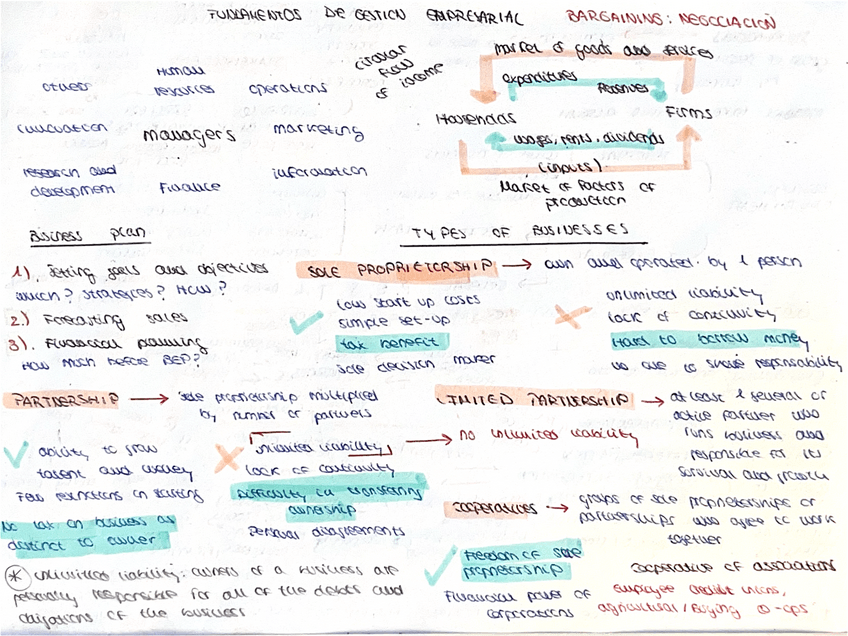 FUNDAMENTOS DE GESTIÓN EMPRESARIAL
BARGAINING: NEGOCIACIÓN
others
Human
resources
operations
innovation
managers
marketing
research and
development
finance
information
circular
flow
of income
Market of goods and services
expenditures
Revenues
Households
Firms
wages, rents, dividends
(inputs)
Market of factors of
production
Business plan
1). Setting goals and objectives
which? strategies? How?
2.) Forecasting sales
3). Financial planning
How much before BEP?
TYPES OF BUSINESSES
SOLE PROPRIETORSHIP → own and operated by 1 person
✓
low start up costs
simple set-up
tax benefit
sole decision maker
✗
unlimited liability
lack of continuity
Hard to borrow money
no one to share responsability
PARTNERSHIP → sole proprietorship multiplied
by number of partners
✓
ability to grow
talent and money
Few restrictions in starting
No tax on business as
distinct to owner
✗
unlimited liability → no unlimited liability
lack of continuity
Difficulty in transfering
ownership
Personal disagreements
LIMITED PARTNERSHIP → at least 1 general or
active partner who
runs business and
responsible for its
survival and growth
cooperatives → groups of sole proprietorships or
partnerships who agree to work
together
✓
Freedom of sole
proprietorship
Financial power of
corporations
cooperative of association
employee credit unions,
agricultural/Buying co-ops
* unlimited liability: owners of a business are
personally responsible for all of the debts and
obligations of the business